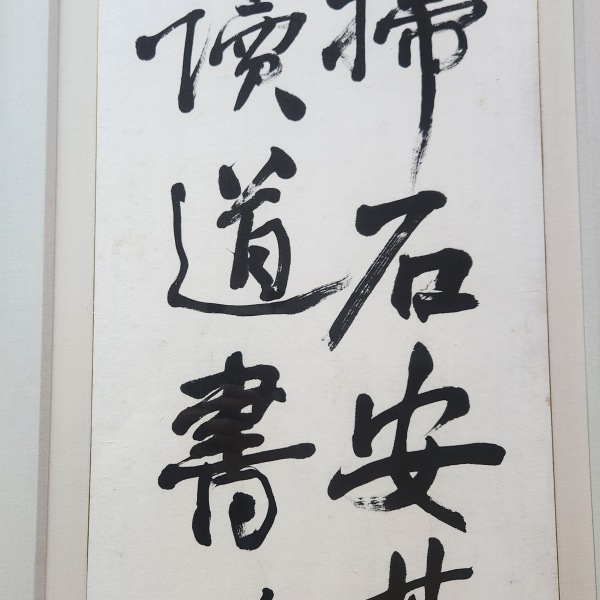 掃石安
讀道書